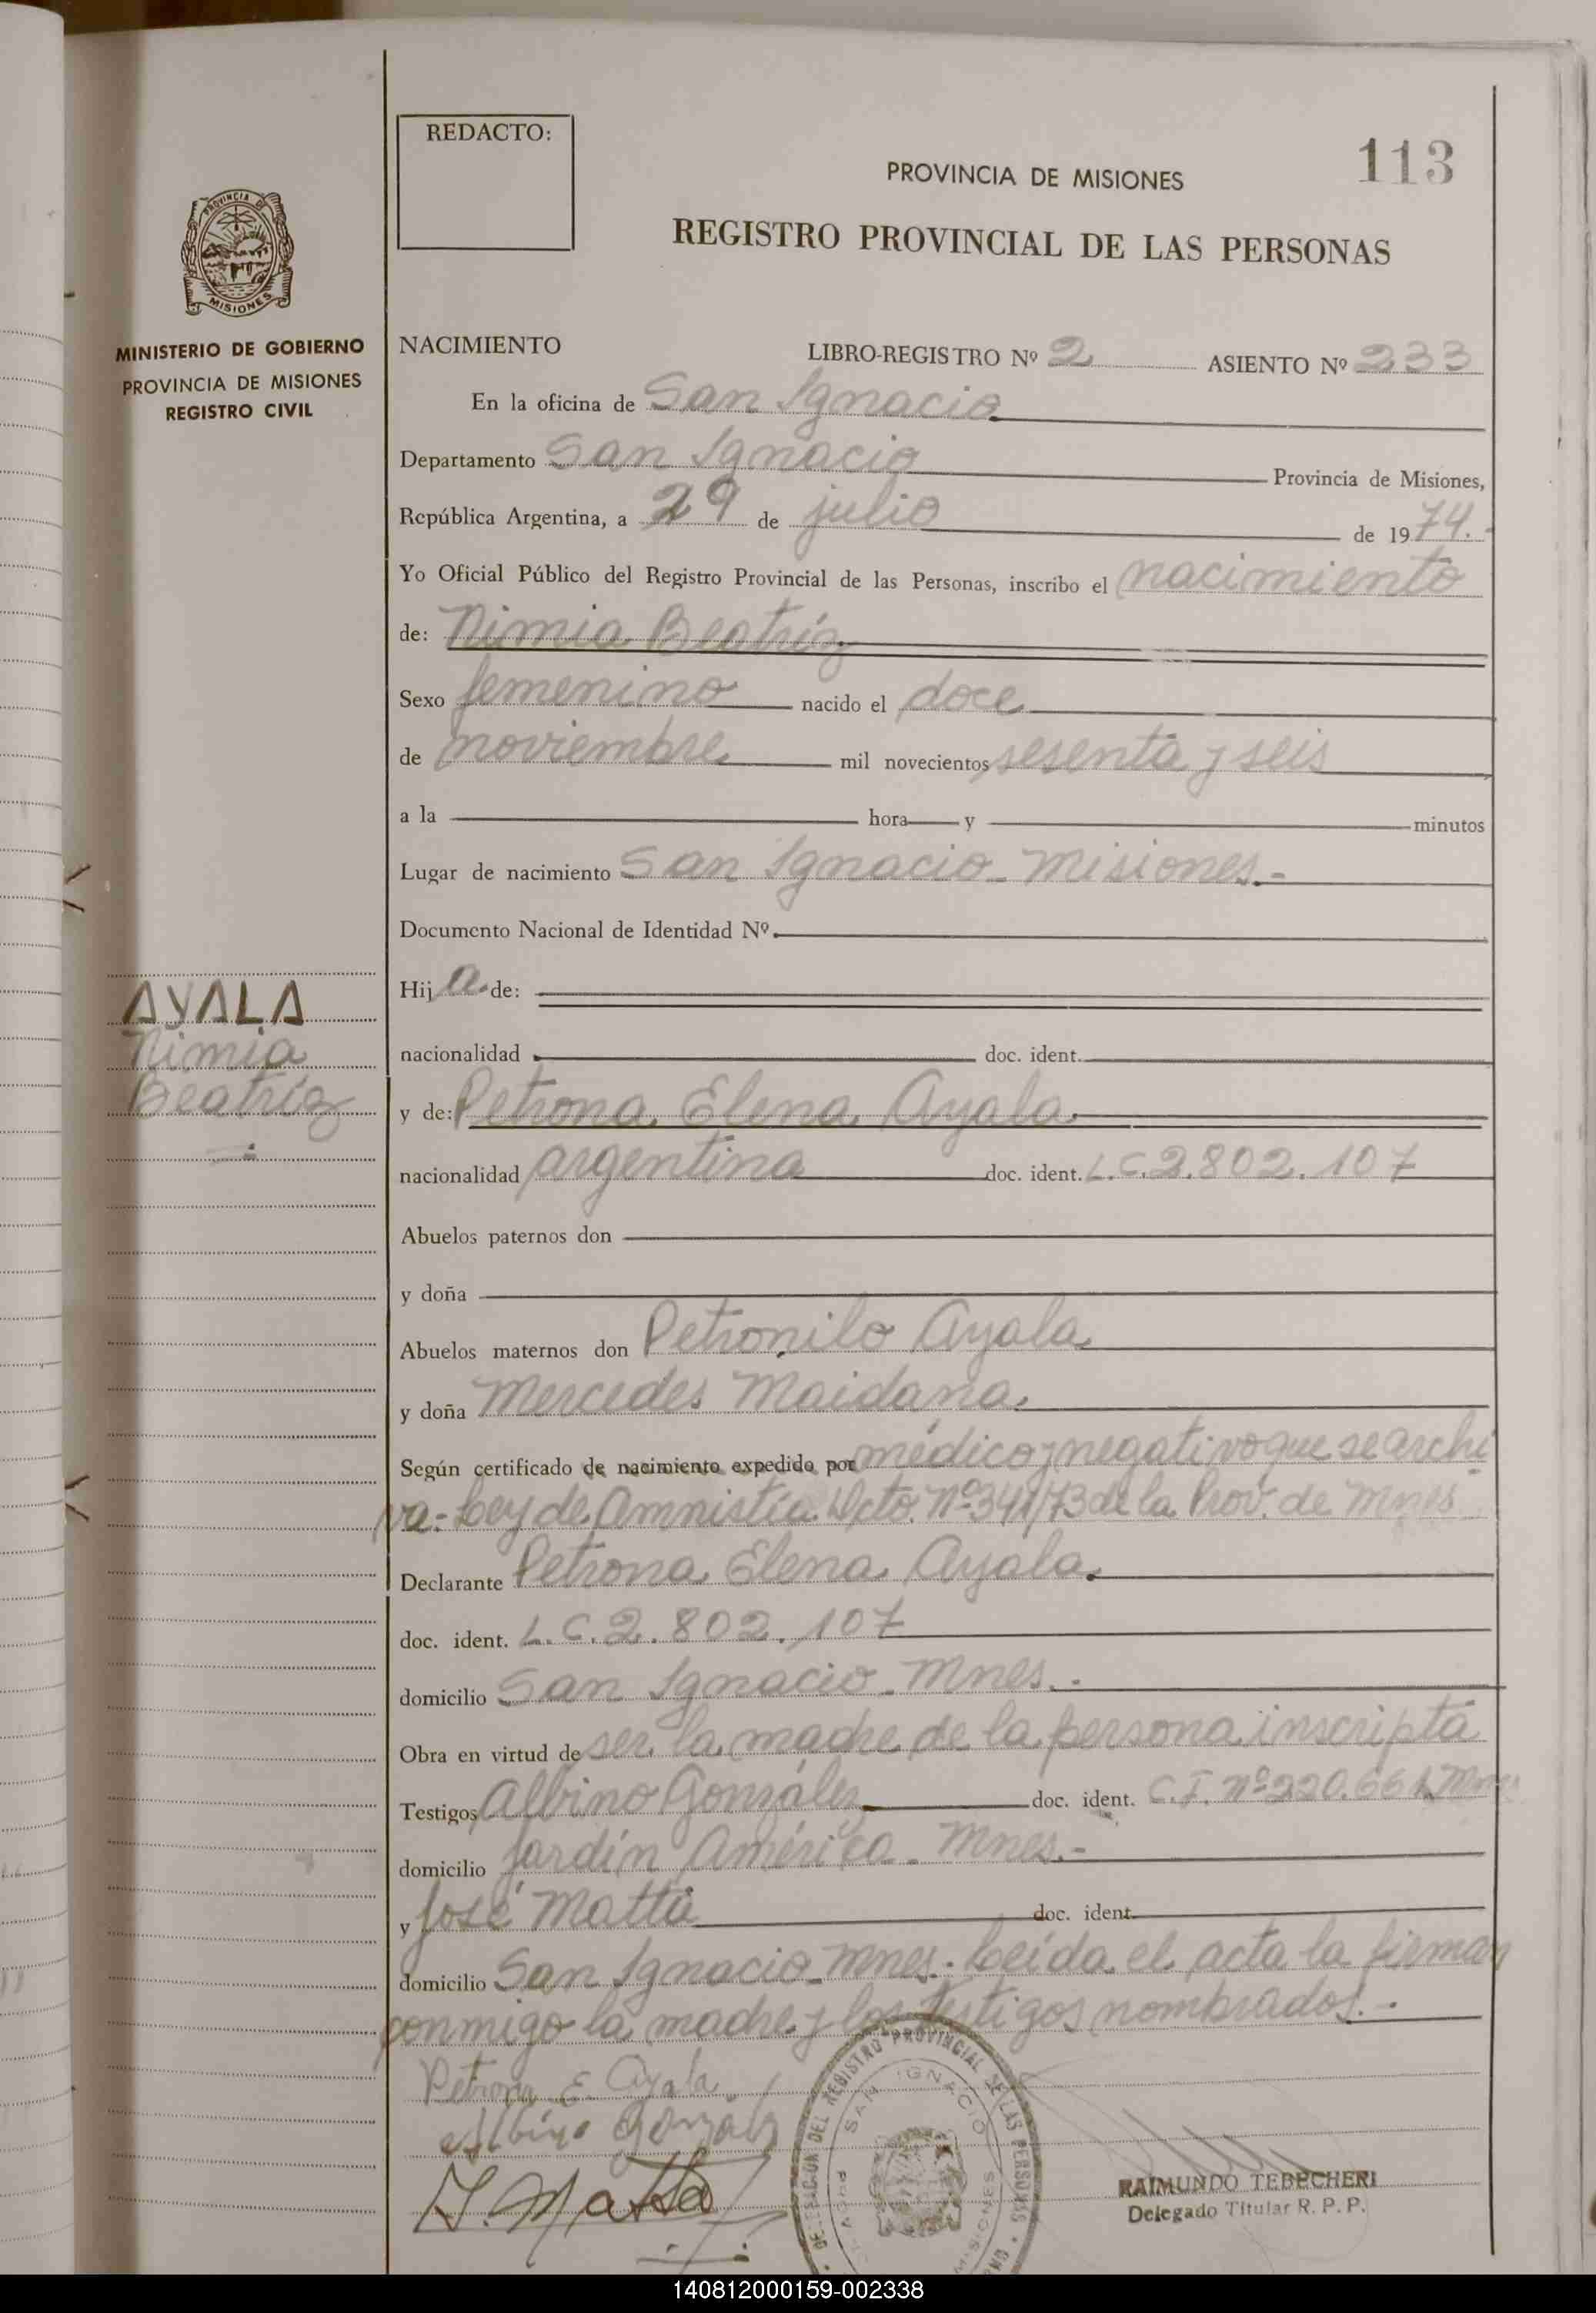 REDACTO:
113
PROVINCIA DE MISIONES
REGISTRO PROVINCIAL DE LAS PERSONAS
PROVINCIA DE
MISIONES
MINISTERIO DE GOBIERNO
PROVINCIA DE MISIONES
REGISTRO CIVIL
NACIMIENTO LIBRO-REGISTRO Nº 2 ASIENTO Nº 233
En la oficina de San Ignacio
Departamento San Ignacio Provincia de Misiones,
República Argentina, a 29 de julio de 1974.-
Yo Oficial Público del Registro Provincial de las Personas, inscribo el nacimiento
de: Nimia Beatríz
Sexo femenino nacido el doce
de noviembre mil novecientos sesenta y seis
a la hora y minutos
Lugar de nacimiento San Ignacio - Misiones.-
Documento Nacional de Identidad Nº
Hija de:
AYALA
Nimia
Beatríz
nacionalidad doc. ident.
y de: Petrona Elena Ayala
nacionalidad argentina doc. ident. L.C. 2.802.107
Abuelos paternos don
y doña
Abuelos maternos don Petronilo Ayala
y doña Mercedes Maidana.
Según certificado de nacimiento expedido por médico y negativo que se archi
va.- Ley de Amnistía Dcto. Nº 341/73 de la Prov. de Mnes
Declarante Petrona Elena Ayala.
doc. ident. L.C. 2.802.107
domicilio San Ignacio - Mnes.-
Obra en virtud de ser la madre de la persona inscripta
Testigos Albino González doc. ident. C.I. nº 220.661 Mnes
domicilio Jardín América - Mnes.-
y José Matta doc. ident.
domicilio San Ignacio - Mnes.- Leída el acta la firman
conmigo la madre y los testigos nombrados.-
Petrona E. Ayala
Albino González
J. Matta
DELEGACION DEL REGISTRO PROVINCIAL DE LAS PERSONAS
SAN IGNACIO
MISIONES
RAIMUNDO TEBECHERI
Delegado Titular R. P. P.
140812000159-002338